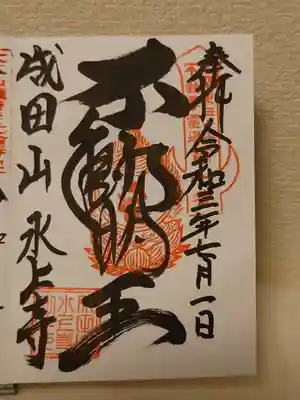 奉拝 令和三年七月一日
不動明王
成田山水上寺